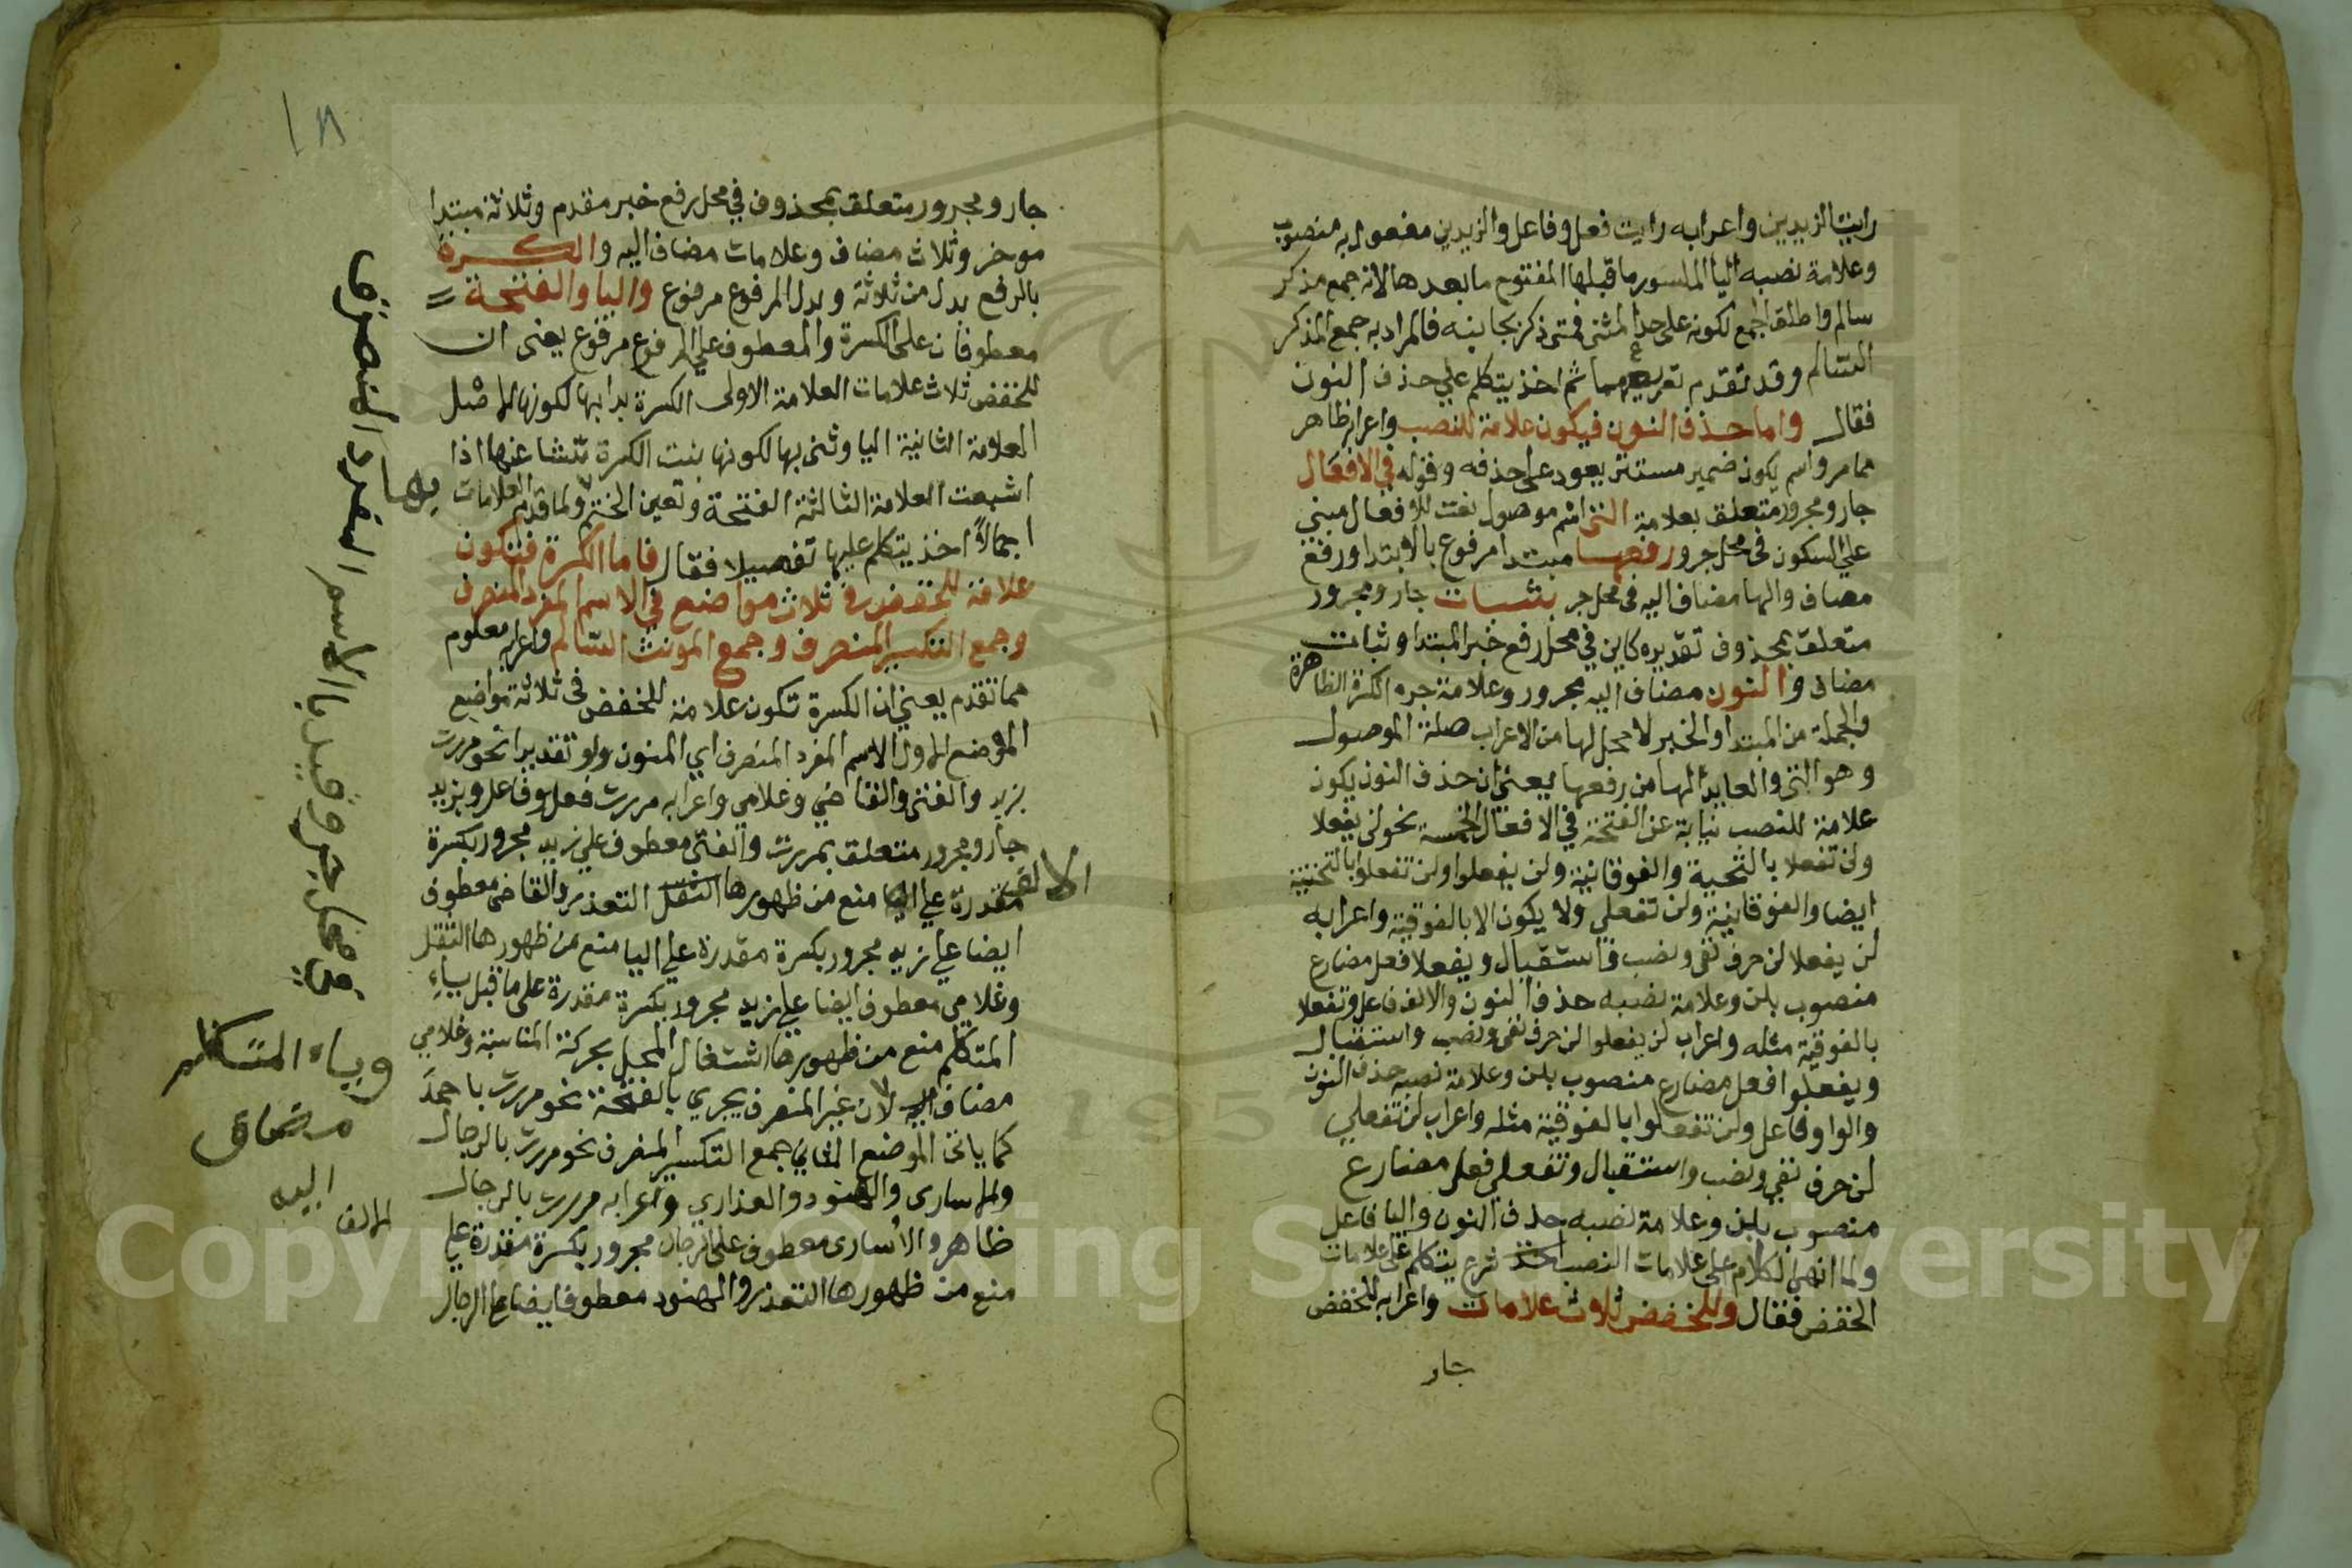 رايت الزيدين واعرابه رايت فعل وفاعل والزيدين مفعول به منصوب
وعلامة نصبه اليا المكسور ما قبلها المفتوح ما بعدها لانه جمع مذكر
سالم واطلق الجمع لكونه على حد المثنى فمتى ذكر بجانبه فالمراد به جمع المذكر
السالم وقد تقدم تعريفهما ثم اخذ يتكلم علي حذف النون
فقال واما حذف النون فيكون علامة للنصب واعرابه ظاهر
مما مر واسم يكون ضمير مستتر يعود على حذفه وقوله في الافعال
جار ومجرور متعلق بعلامة التي اسم موصول نعت للافعال مبني
علي السكون في محل جر ورفعها مبتدا مرفوع بالابتدا ورفع
مضاف والها مضاف اليه في محل جر بثبات جار ومجرور
متعلق بمحذوف تقديره كاين في محل رفع خبر المبتدا وثبات
مضاف والنون مضاف اليه مجرور وعلامة جره الكسرة الظاهرة
والجملة من المبتدا والخبر لا محل لها من الاعراب صلة الموصول
وهو التي والعايد الها من رفعها يعني ان حذف النون يكون
علامة للنصب نيابة عن الفتحة في الافعال الخمسة نحو لن يفعلا
ولن تفعلا بالتحية والفوقانية ولن يفعلوا ولن تفعلوا بالتحتية
ايضا والفوقانية ولن تفعلي ولا يكون الا بالفوقية واعرابه
لن يفعلا لن حرف نفي ونصب واستقبال ويفعلا فعل مضارع
منصوب بلن وعلامة نصبه حذف النون والالف فاعل وتفعلا
بالفوقية مثله واعراب لن يفعلوا لن حرف نفي ونصب واستقبال
ويفعلوا فعل مضارع منصوب بلن وعلامة نصبه حذف النون
والواو فاعل ولن تفعلوا بالفوقية مثله واعراب لن تفعلي
لن حرف نفي ونصب واستقبال وتفعلي فعل مضارع
منصوب بلن وعلامة نصبه حذف النون واليا فاعل
ولما انهى الكلام على علامات النصب اخذ شرع يتكلم على علامات
الخفض فقال وللخفض ثلاث علامات واعرابه للخفض
جار
١٨
جار ومجرور متعلق بمحذوف في محل رفع خبر مقدم وثلاثة مبتدا
موخر وثلاث مضاف وعلامات مضاف اليه والكسرة
بالرفع بدل من ثلاثة وبدل المرفوع مرفوع واليا والفتحة =
معطوفان على الكسرة والمعطوف علي المرفوع مرفوع يعني ان
للخفض ثلاث علامات العلامة الاولى الكسرة بدا بها لكونها الاصل
العلامة الثانية اليا وثنى بها لكونها بنت الكسرة تنشا عنها اذا
اشبعت العلامة الثالثة الفتحة وتعين الختم بها ولما قدم العلامات
اجمالاً اخذ يتكلم عليها تفصيلا فقال فاما الكسرة فتكون
علامة للخفض في ثلاث مواضع في الاسم المفرد المنصرف
وجمع التكسير المنصرف وجمع المونث السالم واعرابه معلوم
مما تقدم يعني ان الكسرة تكون علامة للخفض في ثلاثة مواضع
الموضع الاول الاسم المفرد المنصرف اي المنون ولو تقديرا نحو مررت
بزيد والفتى والقاضي وغلامي واعرابه مررت فعل وفاعل وبزيد
جار ومجرور متعلق بمررت والفتى معطوف علي زيد مجرور بكسرة
مقدرة علي الالف منع من ظهورها الثقل التعذر والقاضي معطوف
ايضا علي زيد مجرور بكسرة مقدرة علي اليا منع من ظهورها الثقل
وغلامي معطوف ايضا علي زيد مجرور بكسرة مقدرة على ما قبل ياء
المتكلم منع من ظهورها اشتغال المحل بحركة المناسبة وغلامي
مضاف اليه لان غير المنصرف يجري بالفتحة نحو مررت باحمد
كما ياتي الموضع الثاني جمع التكسير المنصرف نحو مررت بالرجال
والاسارى والهنود والعذاري واعرابه مررت بالرجال
ظاهر والأسارى معطوف على الرجال مجرور بكسرة مقدرة علي الالف
منع من ظهورها التعذر والهنود معطوف ايضا علي الرجال
في محل جر وقيد بالاسم المفرد المنصرف
وياء المتكلم
مضاف
اليه
Copyright © King Saud University
195